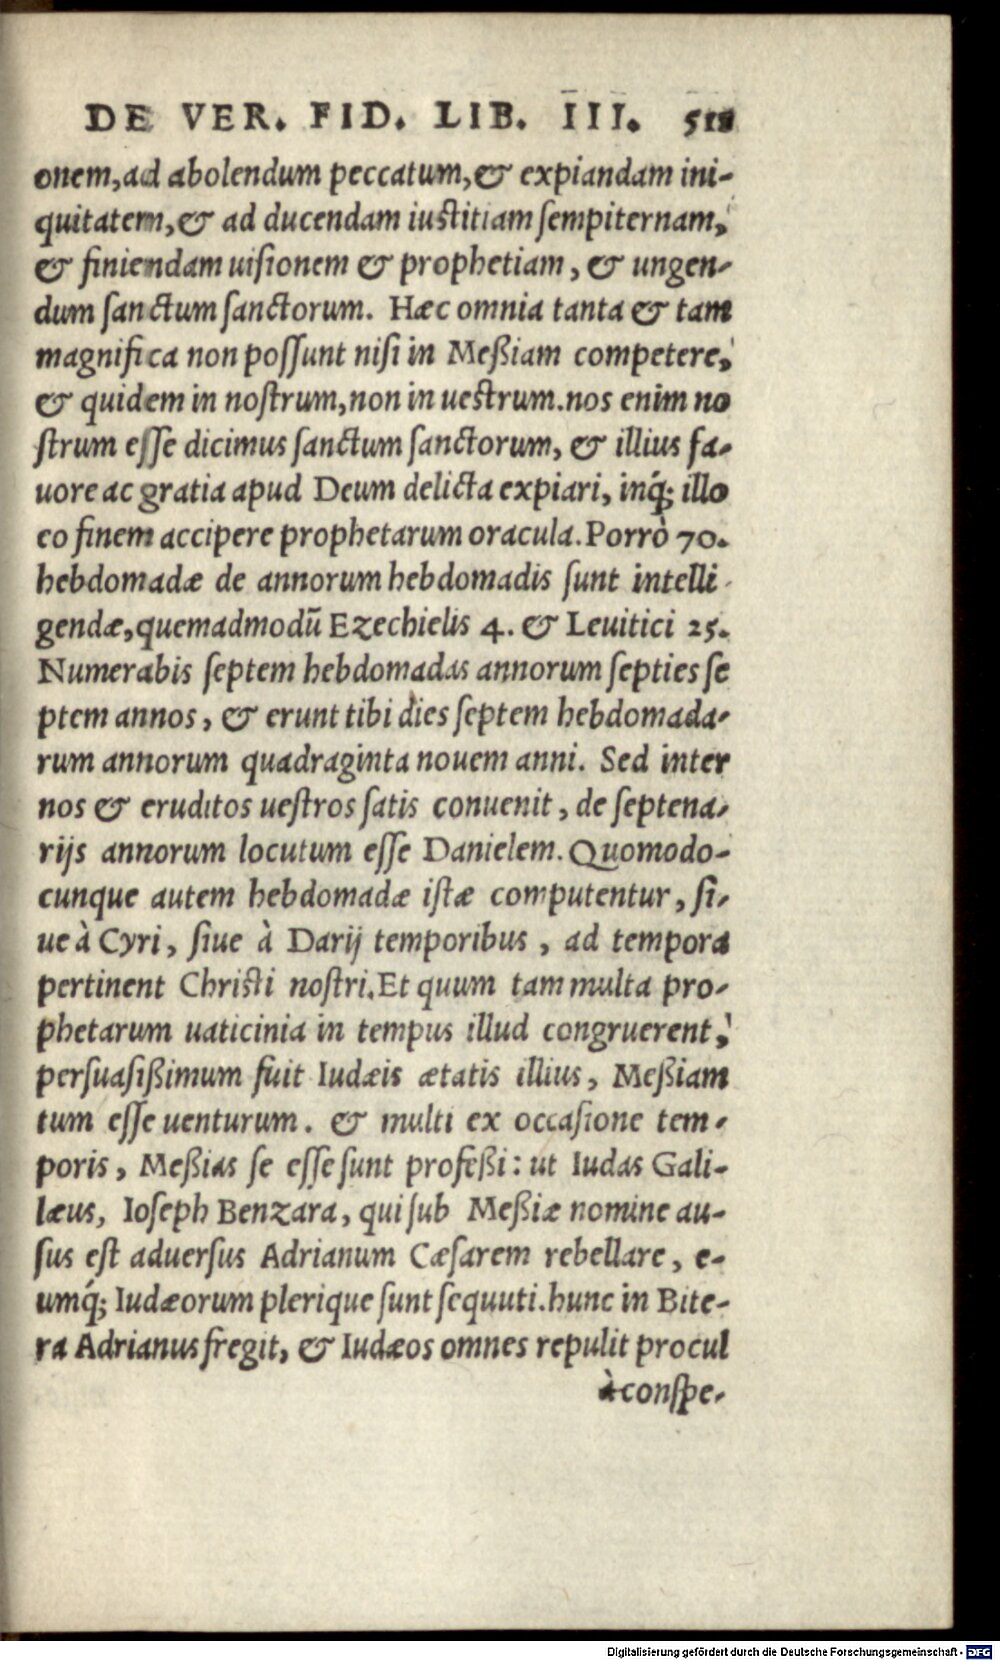 DE VER. FID. LIB. III.
onem, ad abolendum peccatum, & expiandam ini-
quitatem, & ad ducendam iustitiam ſempiternam,
& finiendam uiſionem & prophetiam, & ungen-
dum ſanctum ſanctorum. Hæc omnia tanta & tam
magnifica non poſſunt niſi in Meßiam competere,
& quidem in noſtrum, non in ueſtrum. nos enim no
ſtrum eſſe dicimus ſanctum ſanctorum, & illius fa-
uore ac gratia apud Deum delicta expiari, inq́; illo
eo finem accipere prophetarum oracula. Porrò 70.
hebdomadæ de annorum hebdomadis ſunt intelli-
gendæ, quemadmodū Ezechielis 4. & Leuitici 25.
Numerabis ſeptem hebdomadas annorum ſepties ſe
ptem annos, & erunt tibi dies ſeptem hebdomada-
rum annorum quadraginta nouem anni. Sed inter
nos & eruditos ueſtros ſatis conuenit, de ſeptena-
rijs annorum locutum eſſe Danielem. Quomodo-
cunque autem hebdomadæ iſtæ computentur, ſi-
ue à Cyri, ſiue à Darij temporibus, ad tempora
pertinent Chriſti noſtri. Et quum tam multa pro-
phetarum uaticinia in tempus illud congruerent,
perſuaſißimum fuit Iudæis ætatis illius, Meßiam
tum eſſe uenturum. & multi ex occaſione tem-
poris, Meßias ſe eſſe ſunt profeßi: ut Iudas Gali-
læus, Ioſeph Benzara, qui ſub Meßiæ nomine au-
ſus eſt aduerſus Adrianum Cæſarem rebellare, e-
umq́; Iudæorum plerique ſunt ſequuti. hunc in Bite-
ra Adrianus fregit, & Iudæos omnes repulit procul
à conſpe-
Digitalisierung gefördert durch die Deutsche Forschungsgemeinschaft - DFG